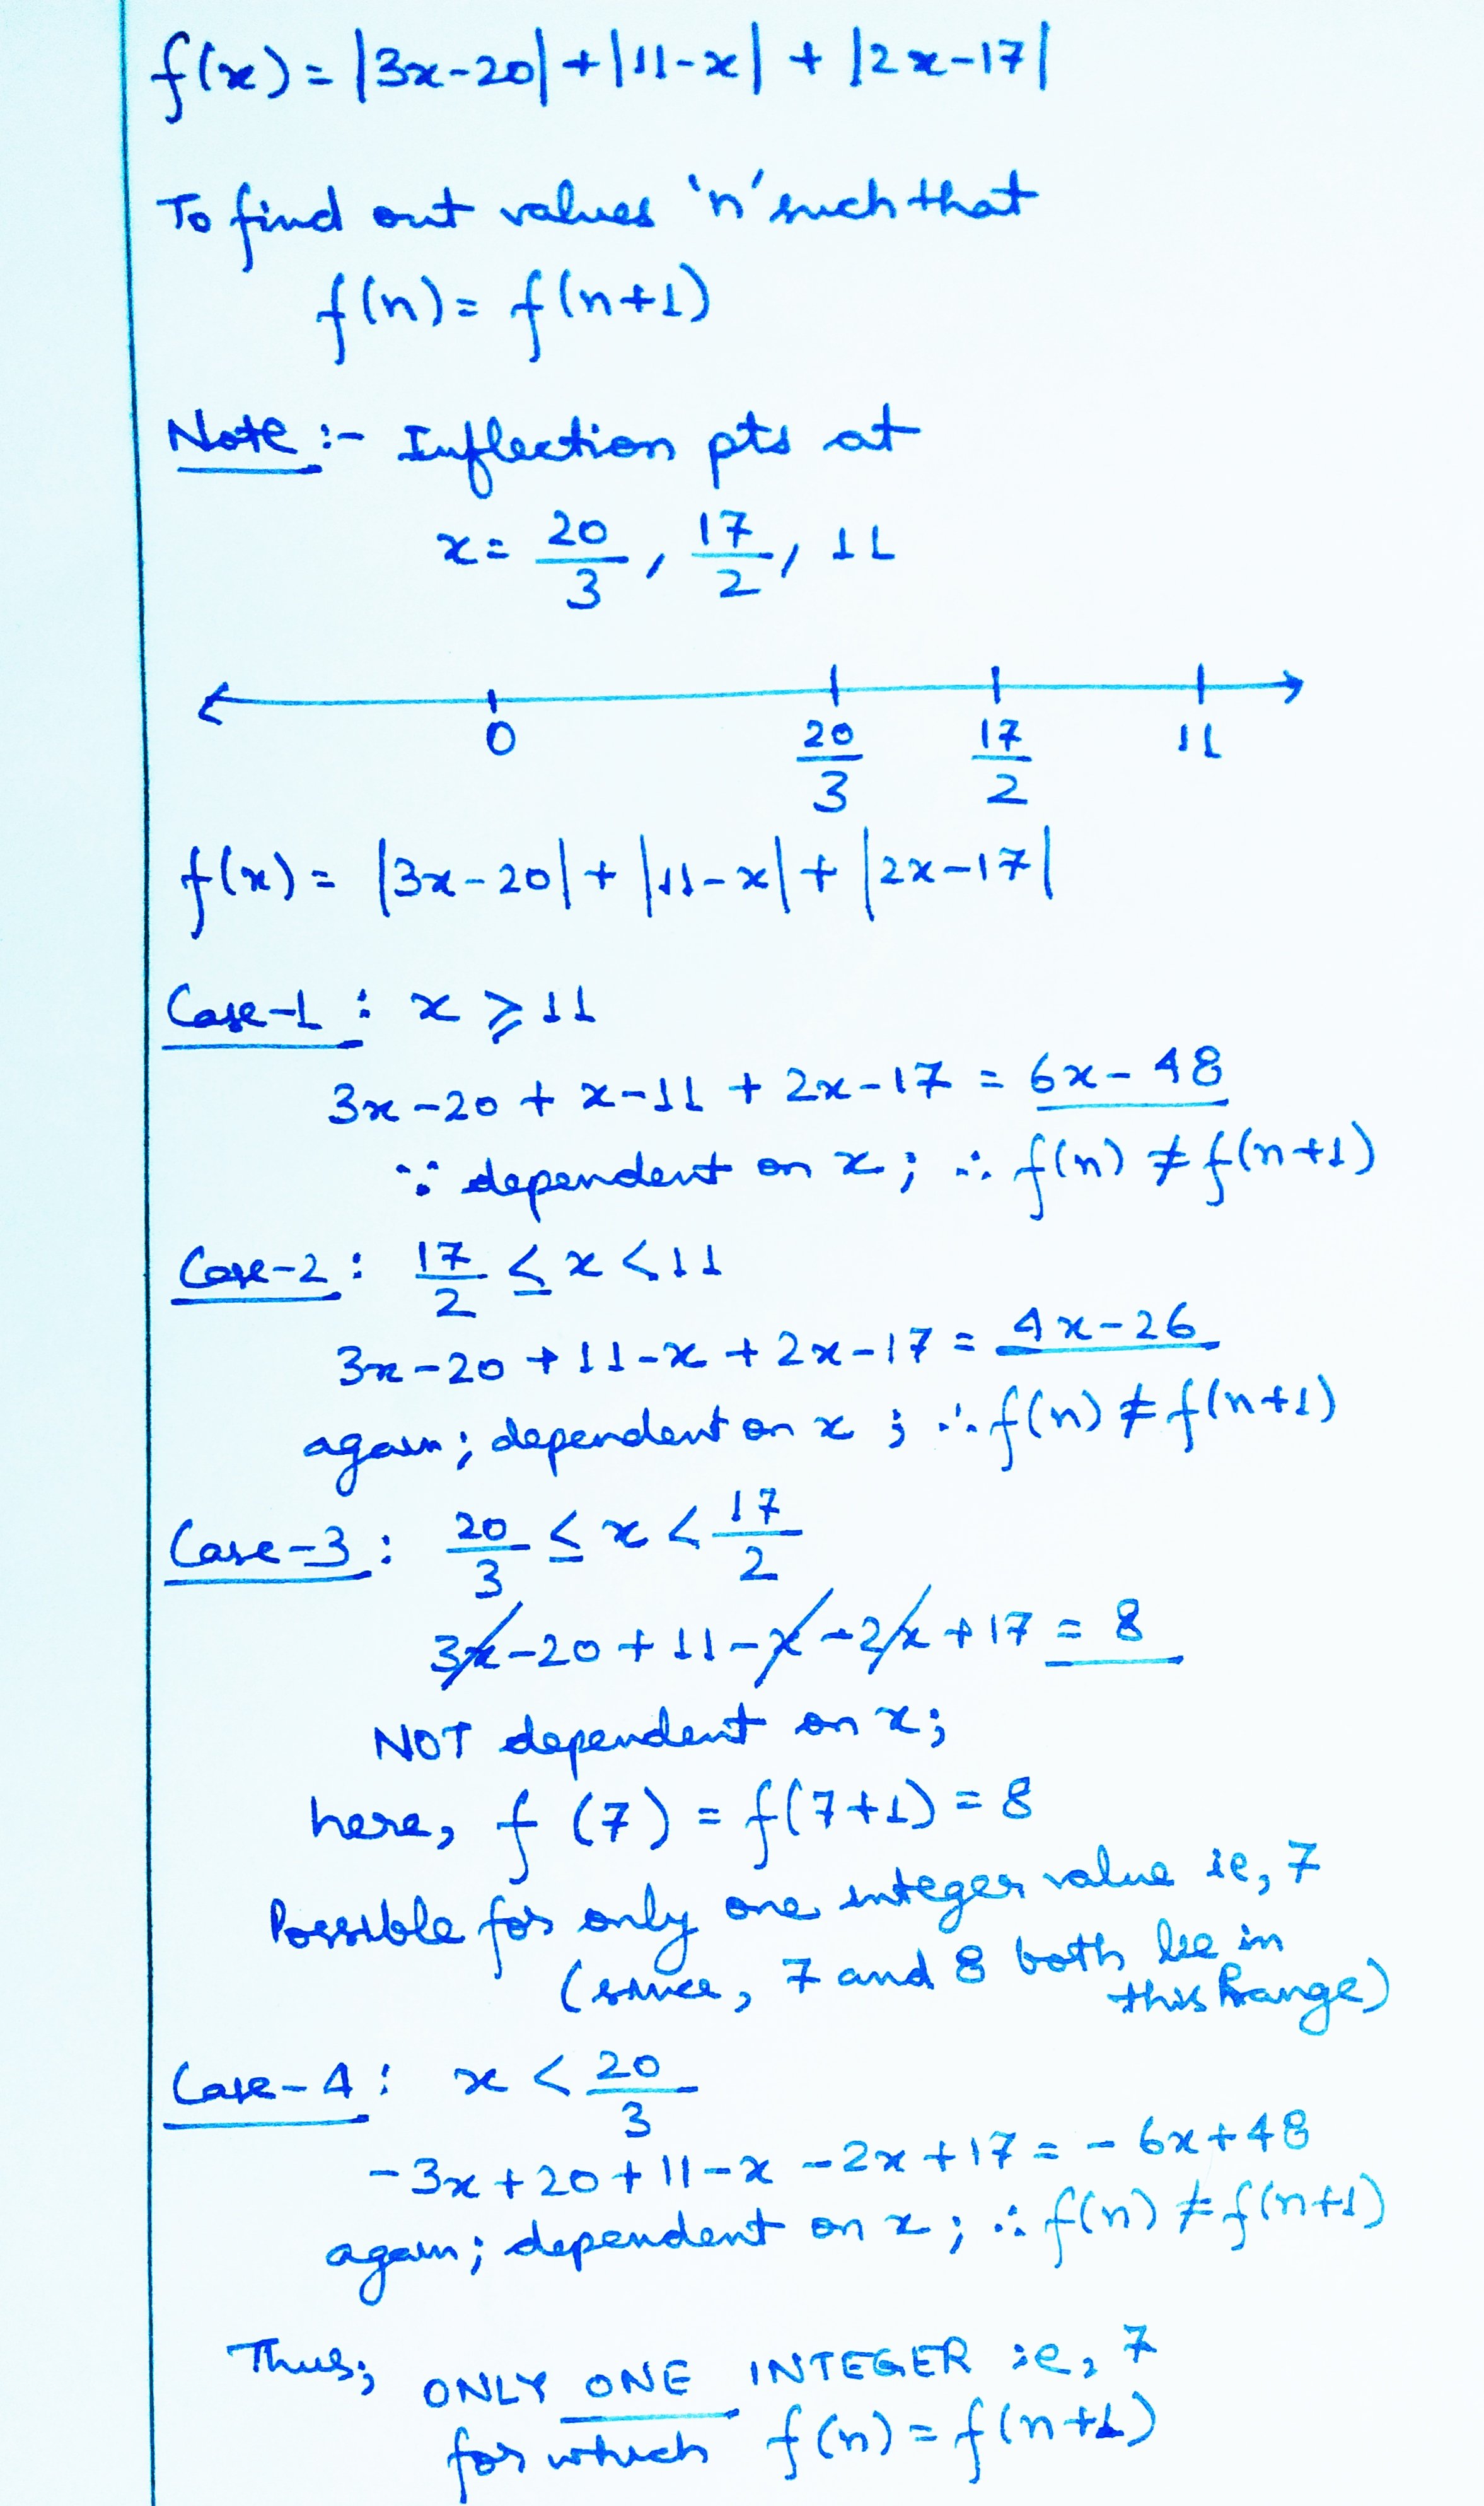 f(x) = |3x-20| + |11-x| + |2x-17|
To find out values 'n' such that
f(n) = f(n+1)
Note :- Inflection pts at
x = 20/3, 17/2, 11
0 20/3 17/2 11
f(x) = |3x-20| + |11-x| + |2x-17|
Case-1 : x ⩾ 11
3x-20 + x-11 + 2x-17 = 6x-48
∵ dependent on x; ∴ f(n) ≠ f(n+1)
Case-2 : 17/2 ≤ x < 11
3x-20 + 11-x + 2x-17 = 4x-26
again; dependent on x ; ∴ f(n) ≠ f(n+1)
Case-3 : 20/3 ≤ x < 17/2
3x-20 + 11-x-2x+17 = 8
NOT dependent on x;
here, f(7) = f(7+1) = 8
Possible for only one integer value ie, 7
(since, 7 and 8 both lie in
this range)
Case-4 : x < 20/3
-3x+20+11-x-2x+17 = -6x+48
again; dependent on x; ∴ f(n) ≠ f(n+1)
Thus; ONLY ONE INTEGER ie, 7
for which f(n) = f(n+1)